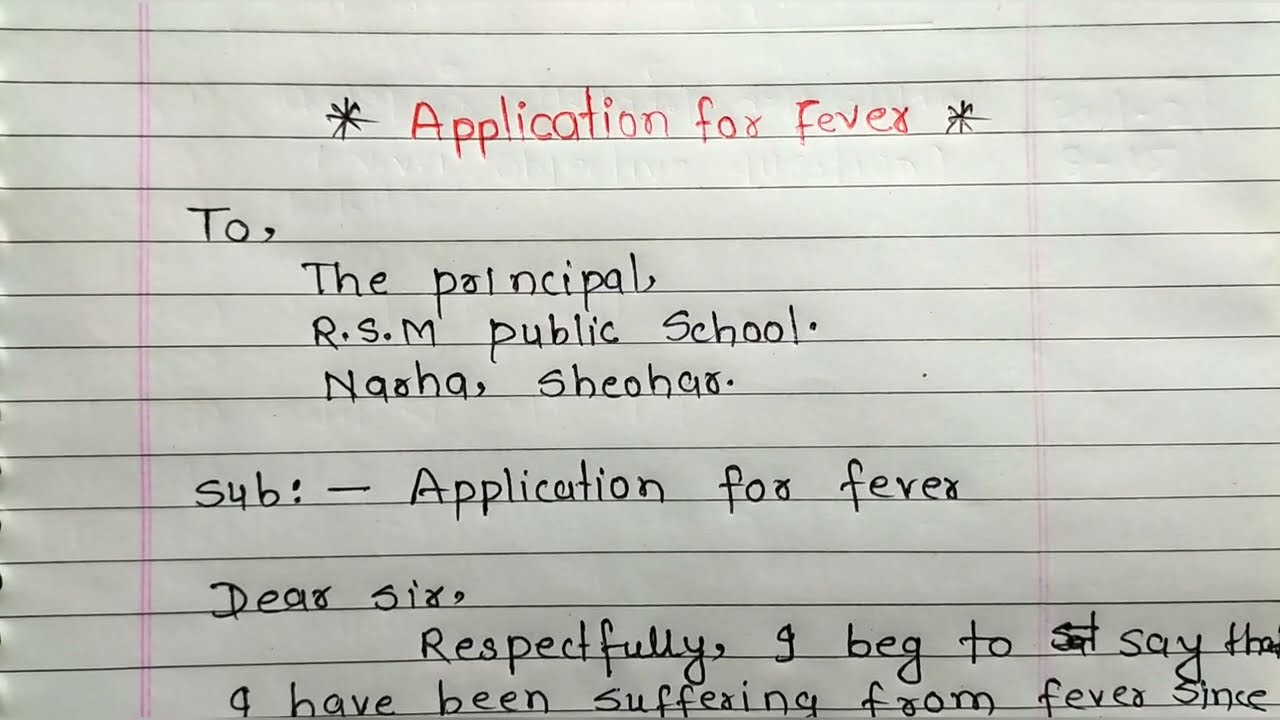 * Application for Fever *
To,
The principal,
R.S.M public School.
Narha, Sheohar.
Sub: - Application for fever
Dear sir,
Respectfully, I beg to say that
I have been suffering from fever since